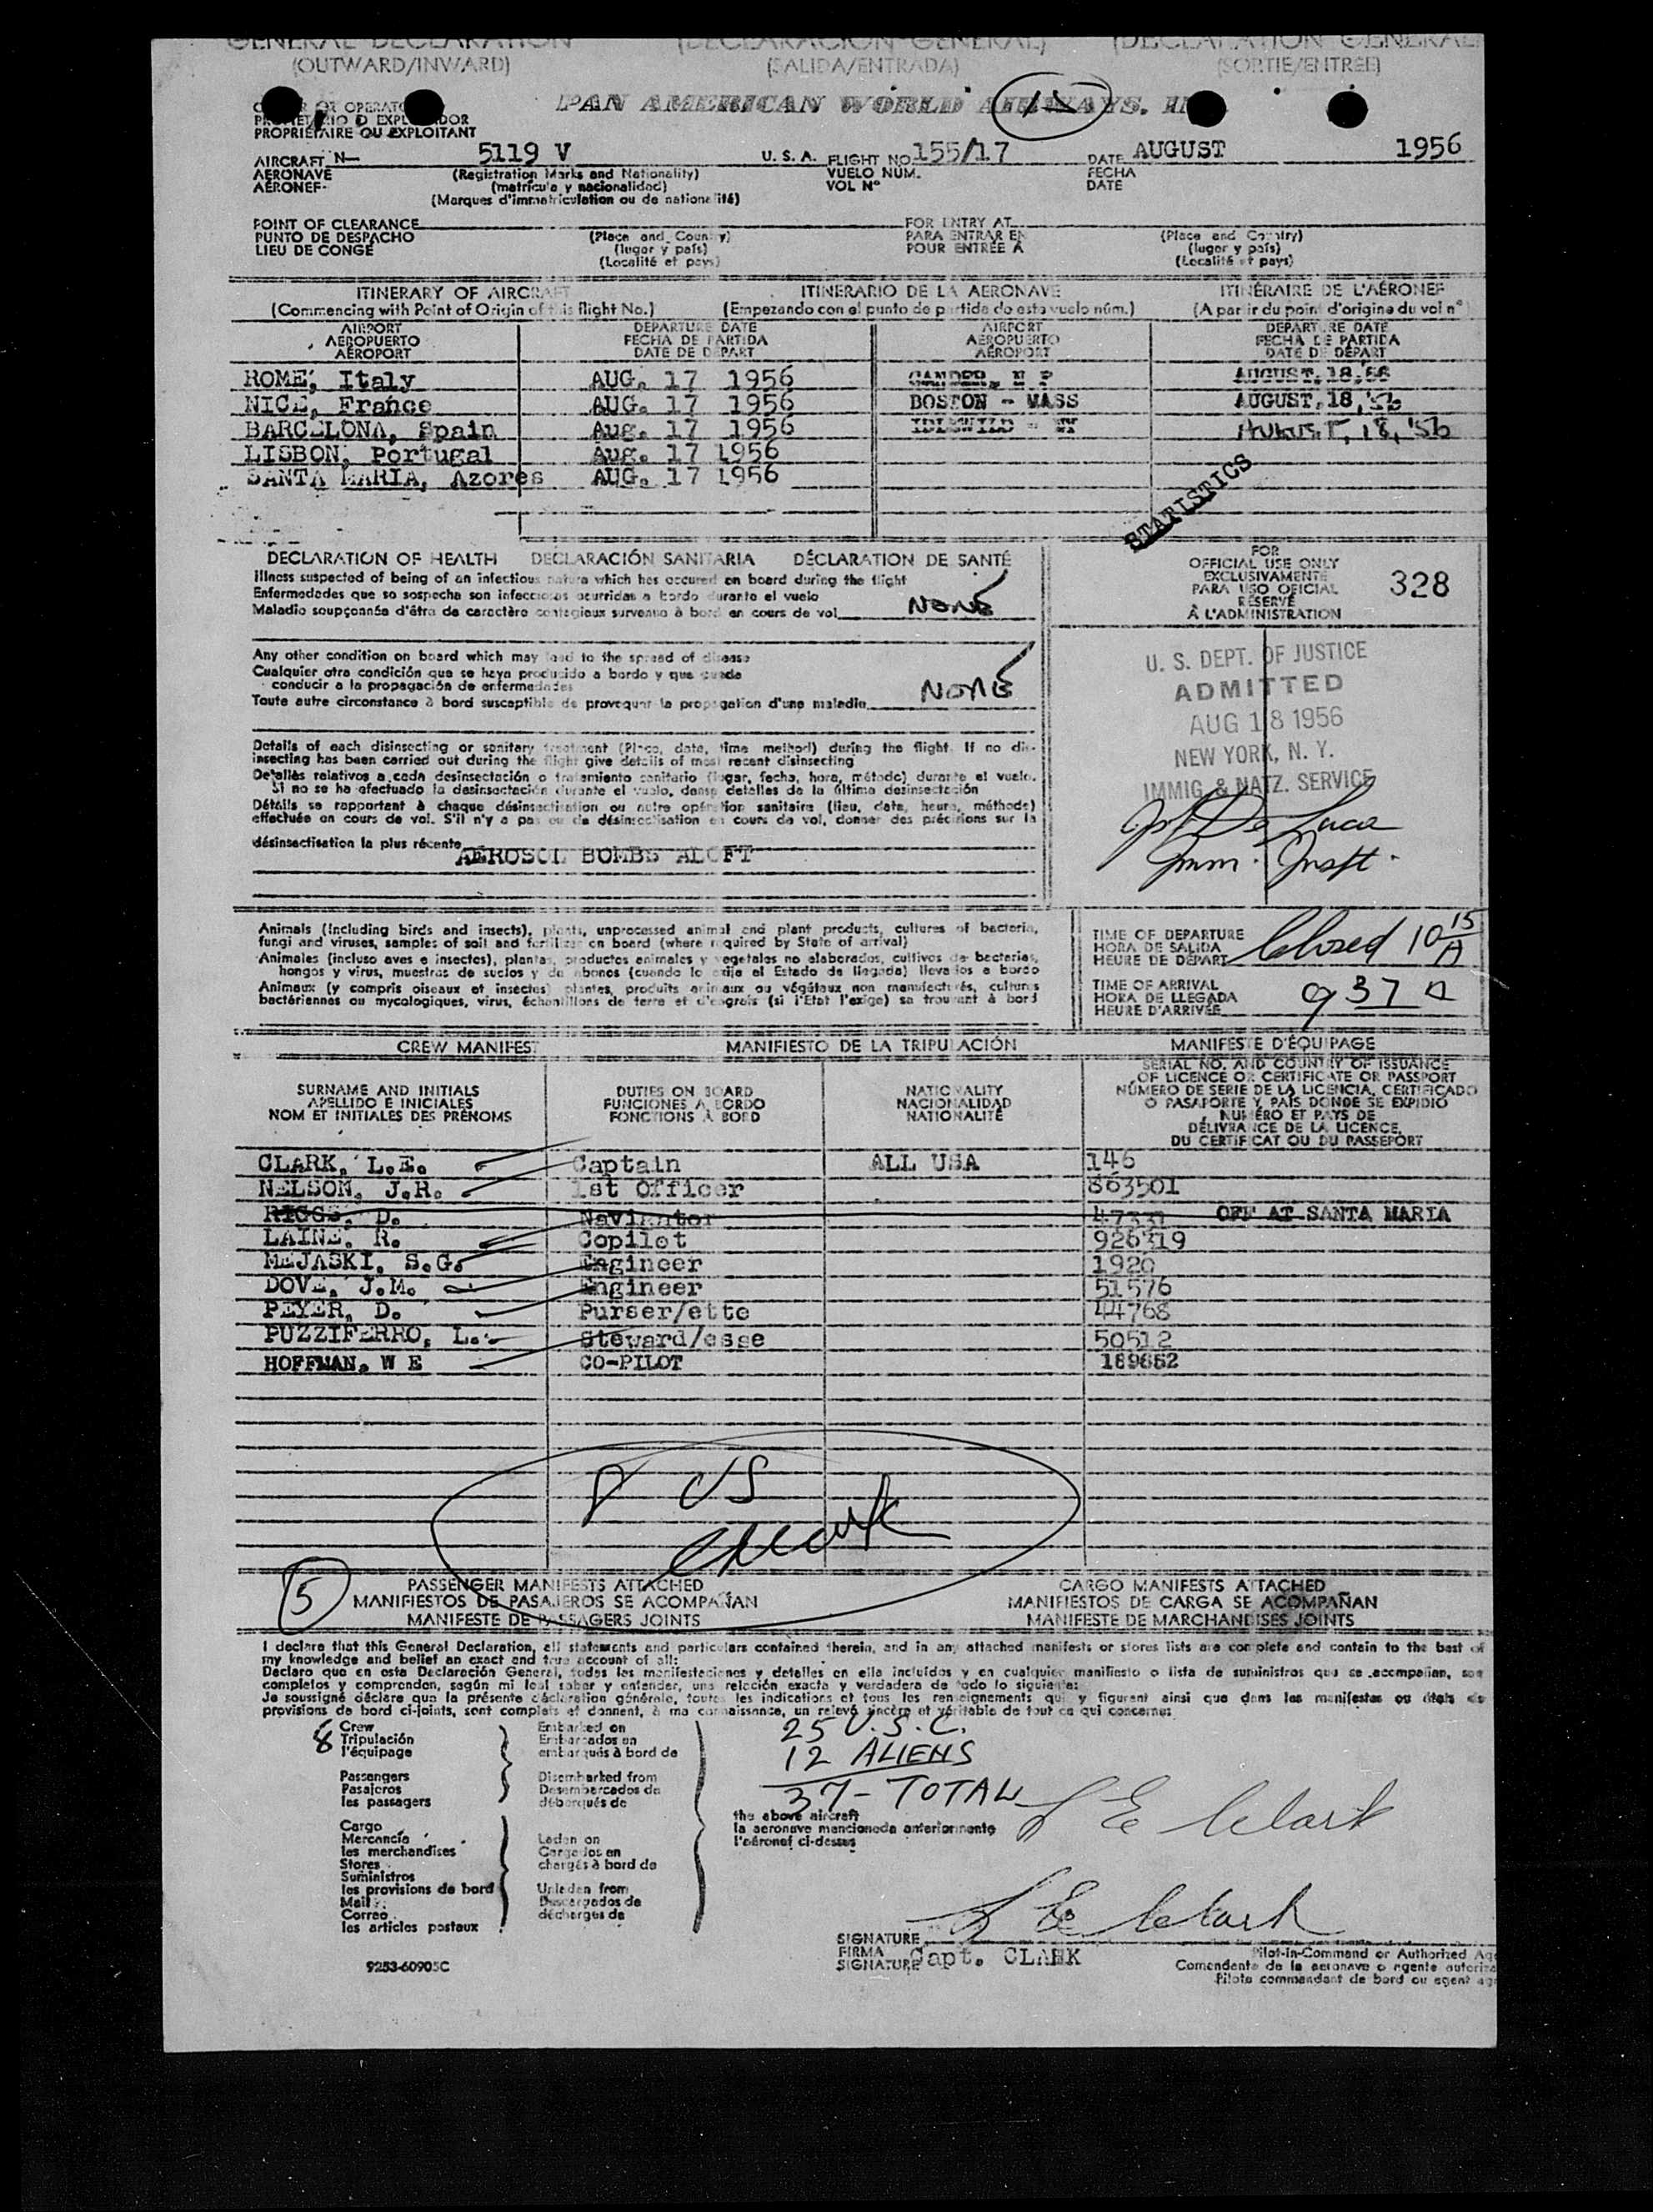 GENERAL DECLARATION (DECLARACION GENERAL) (DECLARATION GENERALE)
(OUTWARD/INWARD) (SALIDA/ENTRADA) (SORTIE/ENTREE)
PAN AMERICAN WORLD AIRWAYS, 
PROPRIÉTAIRE OU EXPLOITANT
AIRCRAFT N- 5119 V U. S. A. FLIGHT NO 155/17 DATE AUGUST 1956
AERONAVE (Registration Marks and Nationality) VUELO NUM. FECHA
AERONEF- (matrícula y nacionalidad) VOL N° DATE
(Marques d'immatriculation ou de nationalité)
POINT OF CLEARANCE FOR ENTRY AT
PUNTO DE DESPACHO (Place and Country) PARA ENTRAR EN (Place and Country)
LIEU DE CONGÉ (lugar y país) POUR ENTRÉE À (lugar y país)
(Localité et pays) (Localité et pays)
ITINERARY OF AIRCRAFT ITINERARIO DE LA AERONAVE ITINÉRAIRE DE L'AÉRONEF
(Commencing with Point of Origin of this flight No.) (Empezando con el punto de partida de este vuelo núm.) (A partir du point d'origine du vol n°
AIRPORT DEPARTURE DATE AIRPORT DEPARTURE DATE
AEROPUERTO FECHA DE PARTIDA AEROPUERTO FECHA DE PARTIDA
AÉROPORT DATE DE DÉPART AÉROPORT DATE DE DÉPART
ROME, Italy AUG. 17 1956 GANDER, N F AUGUST, 18, 56
NICE, France AUG. 17 1956 BOSTON - MASS AUGUST, 18, '56
BARCELONA, Spain Aug. 17 1956 IDLEWILD - NY AUGUST, 18, '56
LISBON, Portugal Aug. 17 1956
SANTA MARIA, Azores AUG. 17 1956
STATISTICS
DECLARATION OF HEALTH DECLARACIÓN SANITARIA DÉCLARATION DE SANTÉ
Illness suspected of being of an infectious nature which has occured on board during the flight
Enfermedades que se sospecha son infecciosas ocurridas a bordo durante el vuelo
Maladie soupçonnée d'être de caractère contagieux survenue à bord en cours de vol NONE
Any other condition on board which may lead to the spread of disease
Cualquier otra condición que se haya producido a bordo y que pueda
conducir a la propagación de enfermedades
Toute autre circonstance à bord susceptible de provoquer la propagation d'une maladie NONE
Details of each disinsecting or sanitary treatment (Place, date, time method) during the flight. If no dis-
insecting has been carried out during the flight give details of most recent disinsecting
Detalles relativos a cada desinsectación o tratamiento sanitario (lugar, fecha, hora, método) durante el vuelo.
Si no se ha efectuado la desinsectación durante el vuelo, dense detalles de la última desinsectación
Détails se rapportant à chaque désinsectisation ou autre opération sanitaire (lieu, date, heure, méthode)
effectuée en cours de vol. S'il n'y a pas eu de désinsectisation en cours de vol, donner des précisions sur la
désinsectisation la plus récente AEROSOL BOMBS ALOFT
FOR
OFFICIAL USE ONLY
EXCLUSIVAMENTE
PARA USO OFICIAL
RÉSERVÉ
À L'ADMINISTRATION
328
U. S. DEPT. OF JUSTICE
ADMITTED
AUG 18 1956
NEW YORK, N. Y.
IMMIG & NATZ. SERVICE
De Luca
Imm. Inspt.
Animals (Including birds and insects), plants, unprocessed animal and plant products, cultures of bacteria,
fungi and viruses, samples of soil and fertilizer on board (where required by State of arrival)
Animales (incluso aves e insectos), plantas, productos animales y vegetales no elaborados, cultivos de bacterias,
hongos y virus, muestras de suelos y de abonos (cuando lo exija el Estado de llegada) llevados a bordo
Animaux (y compris oiseaux et insectes) plantes, produits animaux ou végétaux non manufacturés, cultures
bactériennes ou mycologiques, virus, échantillons de terre et d'engrais (si l'Etat l'exige) se trouvant à bord
TIME OF DEPARTURE
HORA DE SALIDA
HEURE DE DÉPART Closed 10 15 A
TIME OF ARRIVAL
HORA DE LLEGADA
HEURE D'ARRIVÉE 9 37 A
CREW MANIFEST MANIFIESTO DE LA TRIPULACIÓN MANIFESTE D'ÉQUIPAGE
SURNAME AND INITIALS DUTIES ON BOARD NATIONALITY
APELLIDO E INICIALES FUNCIONES A BORDO NACIONALIDAD
NOM ET INITIALES DES PRÉNOMS FONCTIONS À BORD NATIONALITÉ
SERIAL NO. AND COUNTRY OF ISSUANCE
OF LICENCE OR CERTIFICATE OR PASSPORT
NÚMERO DE SERIE DE LA LICENCIA, CERTIFICADO
O PASAPORTE Y PAÍS DONDE SE EXPIDIÓ
NUMÉRO ET PAYS DE
DÉLIVRANCE DE LA LICENCE,
DU CERTIFICAT OU DU PASSEPORT
CLARK, L.E. Captain ALL USA 146
NELSON, J.R. 1st Officer 863501
RIGGS, D. Navigator 47331 OFF AT SANTA MARIA
LAINE, R. Copilot 926319
MEJASKI, S.G. Engineer 1920
DOVE, J.M. Engineer 51576
PEYER, D. Purser/ette 44768
PUZZIFERRO, L. Steward/esse 50512
HOFFMAN, W E CO-PILOT 189682
8 US
5
PASSENGER MANIFESTS ATTACHED CARGO MANIFESTS ATTACHED
MANIFIESTOS DE PASAJEROS SE ACOMPAÑAN MANIFIESTOS DE CARGA SE ACOMPAÑAN
MANIFESTE DE PASSAGERS JOINTS MANIFESTE DE MARCHANDISES JOINTS
I declare that this General Declaration, all statements and particulars contained therein, and in any attached manifests or stores lists are complete and contain to the best of
my knowledge and belief an exact and true account of all:
Declaro que en esta Declaración General, todas las manifestaciones y detalles en ella incluídos y en cualquier manifiesto o lista de suministros que se acompañan, son
completos y comprenden, según mi leal saber y entender, una relación exacta y verdadera de todo lo siguiente:
Je soussigné déclare que la présente déclaration générale, toutes les indications et tous les renseignements qui y figurent ainsi que dans les manifestes ou états de
provisions de bord ci-joints, sont complets et donnent, à ma connaissance, un relevé sincère et véritable de tout ce qui concerne:
8 Crew Embarked on 25 U.S.C.
Tripulación Embarcados en 12 ALIENS
l'équipage embarqués à bord de 37 - TOTAL
Passengers Disembarked from
Pasajeros Desembarcados de
les passagers débarqués de
the above aircraft
la aeronave mencionada anteriormente
l'aéronef ci-dessus
L E Clark
Cargo
Mercancía Laden on
les merchandises Cargados en
Stores chargés à bord de
Suministros
les provisions de bord Unladen from
Mail Descargados de
Correo déchargés de
les articles postaux
L E Clark
SIGNATURE
FIRMA Capt. CLARK
SIGNATURE
Pilot-in-Command or Authorized
Comandante de la aeronave o agente
Pilote commandant de bord ou agent
9253-60905C